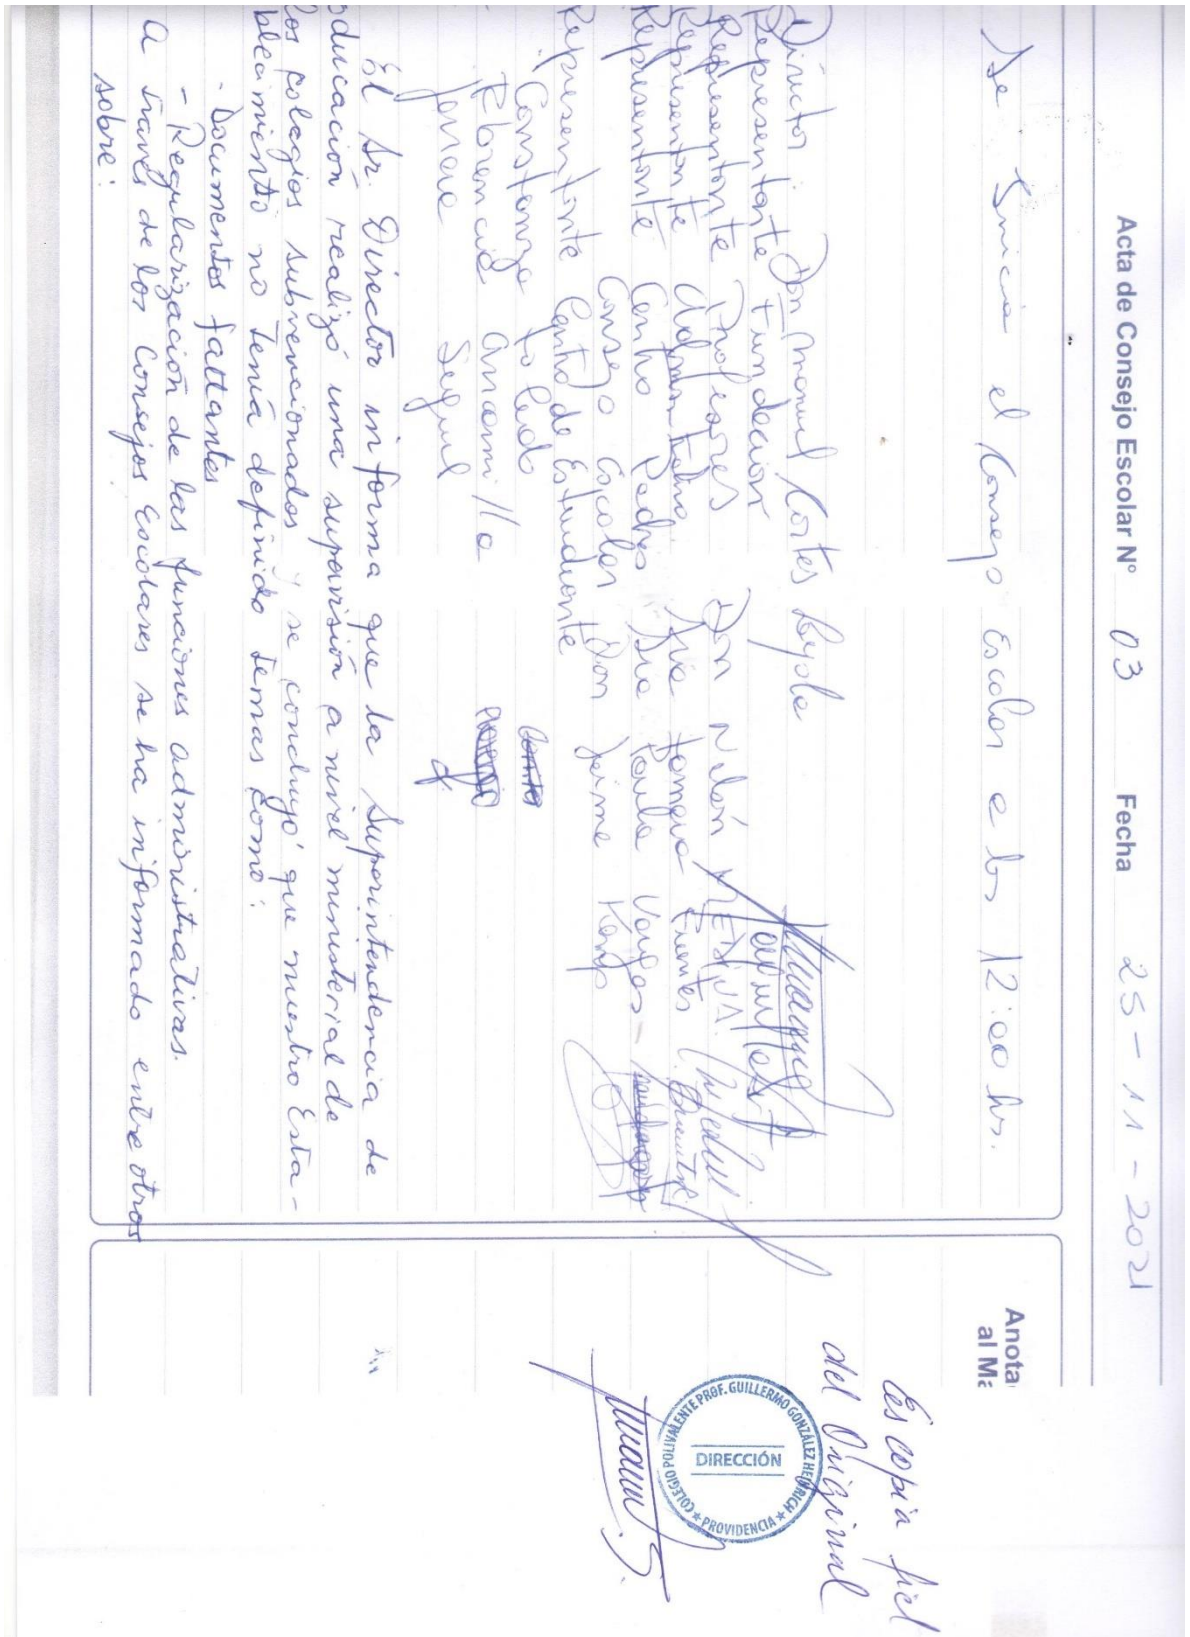 Acta de Consejo Escolar Nº 03 Fecha 25-11-2021
Anota
al Ma
Se Inicia el Consejo Escolar a las 12:00 hrs.
Director: Don Manuel Cortes Loyola
Representante Fundación
Representante Profesores Don Nelson Mejía
Representante Sra Tamara Fuentes
Representante Centro Padres Sra Paula Vargas
Consejo Escolar Don Jaime
Representante Centro de Estudiante
Constanza Toledo
Florencia
Seguel
El Sr. Director informa que la Superintendencia de
educación realizó una supervisión a nivel ministerial de
los colegios subvencionados y se concluyó que nuestro Esta-
blecimiento no tenía definido temas como:
- Documentos faltantes
- Regularización de las funciones administrativas.
A través de los Consejos Escolares se ha informado entre otros
sobre:
Es copia fiel
del Original
COLEGIO POLIVALENTE PROF. GUILLERMO GONZÁLEZ HEINRICH
DIRECCIÓN
★ PROVIDENCIA ★